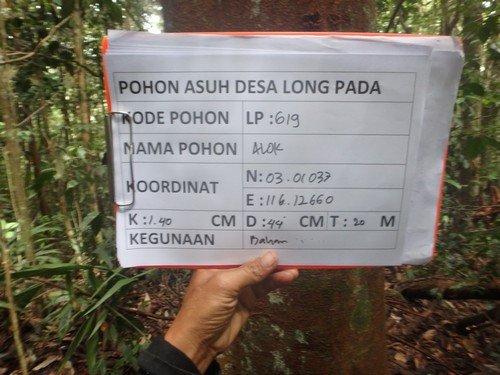 POHON ASUH DESA LONG PADA
KODE POHON LP : 619
NAMA POHON ALOK
KOORDINAT N: 03.01037
E : 116.12660
K : 1.40 CM D : 44 CM T : 20 M
KEGUNAAN Bahan